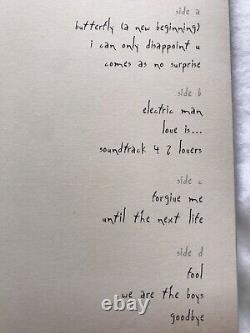 side a
butterfly (a new beginning)
i can only disappoint u
comes as no surprise
side b
electric man
love is...
soundtrack 4 2 lovers
side c
forgive me
until the next life
side d
fool
we are the boys
goodbye
ebay